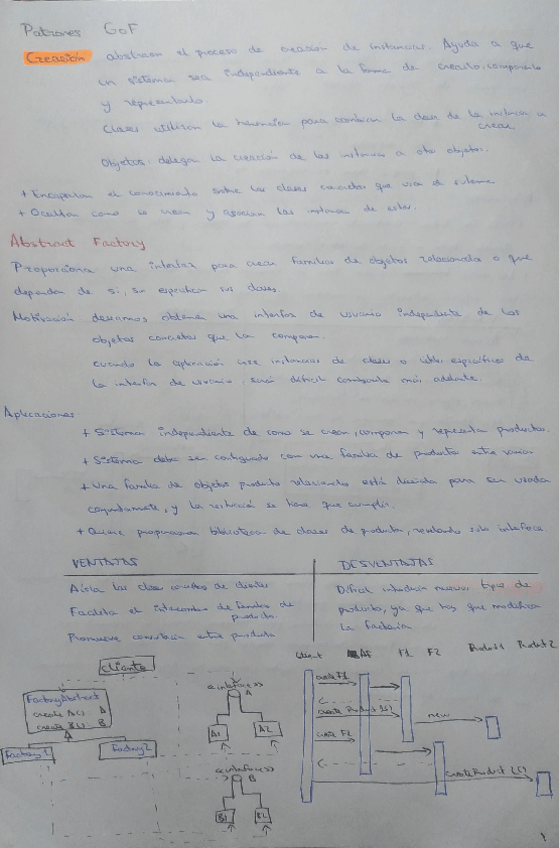 Patrones GoF
Creación abstraen el proceso de creación de instancias. Ayuda a que
un sistema sea independiente a la forma de crearlo, componerlo
y representarlo.
Clases utilizan la herencia para cambiar la clase de la instancia a
crear
Objetos: delegan la creación de las instancias a otro objeto.
+ Encapsulan el conocimiento sobre las clases concretas que usa el sistema
+ Ocultan como se crean y asocian las instancias de estas.
Abstract Factory
Proporciona una interfaz para crear familias de objetos relacionada o que
dependen de sí, sin especificar sus clases.
Motivación deseamos obtener una interfaz de usuario independiente de los
objetos concretos que la componen.
cuando la aplicación cree instancias de clases o específicas de
la interfaz de usuario, será difícil cambiarla más adelante.
Aplicaciones
+ Sistema independiente de como se crean, componen y representan productos.
+ Sistema debe ser configurado con una familia de producto entre varias
+ Una familia de objetos producto relacionados está diseñada para ser usada
conjuntamente, y la restricción se tiene que cumplir.
+ Quiere proporcionar biblioteca de clases de producto, revelando solo interfaces
VENTAJAS
DESVENTAJAS
Aísla las clases concretas de clientes
Facilita el intercambio de familias de
producto.
Promueve consistencia entre producto
Difícil introducir nuevos tipos de
producto, ya que hay que modificar
la factoría.
cliente
FactoryAbstract
create A(): A
create B(): B
Factory1
Factory2
<<interface>>
A
A1
A2
<<interface>>
B
B1
B2
Client AF F1 F2 Product1 Product2
create F1
create Product 1()
new
create F2
create Product 2()
1